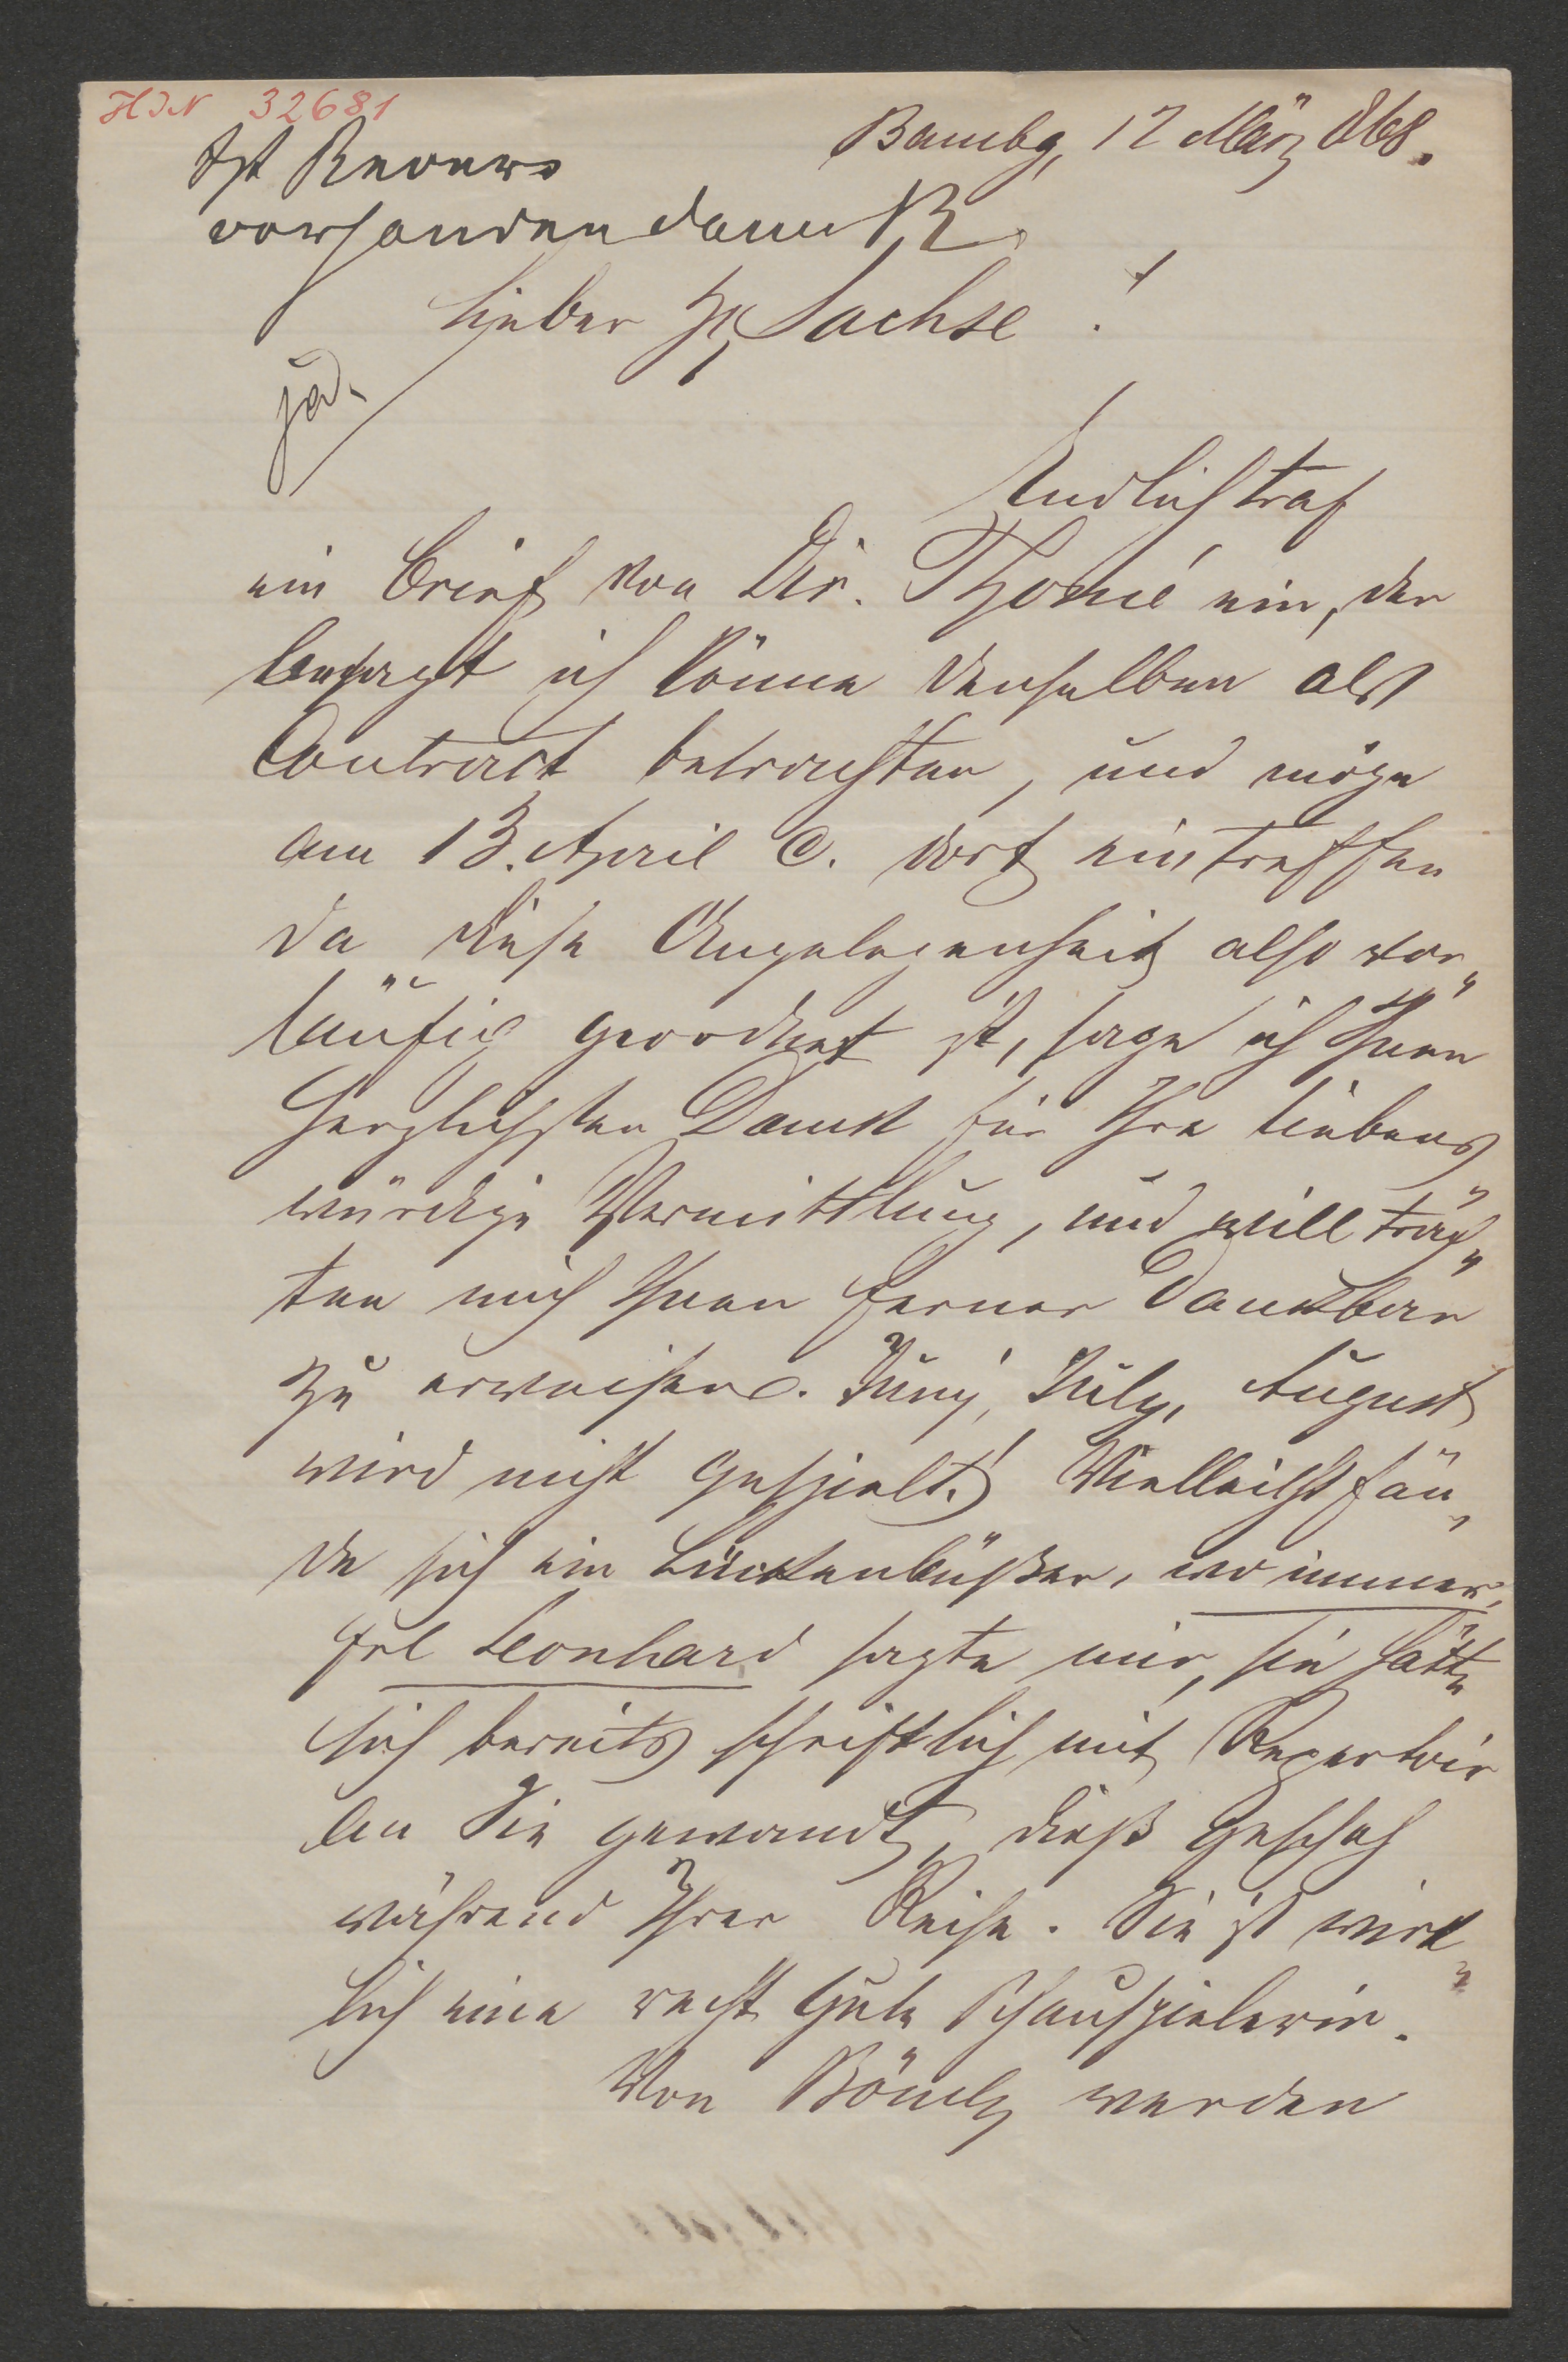 HIN 32681
Bambg, 17 März 868.
Ist Revers
vorhanden dann B.
ja.
Lieber Hr Sachse!
Endlich traf
ein Brief von Dir. Thomé ein, der
besagt ich könne denselben als
Contract betrachten, und möge
am 13. April c. dort eintreffen
da diese Angelegenheit also vor„
läufig geordnet ist, sage ich Ihnen
herzlichsten Dank für Ihre liebens
würdige Vermittlung, und will trach„
ten mich Ihnen ferner Dankbar
zu erweisen. Juny, July, August
wird nicht gespielt! Vielleicht fän„
de sich ein Lückenbüßer, wo immer,
Frl Leonhard sagte mir, sie hätte
sich bereits schriftlich mit Repertoir
an Sie gewandt, dieß geschah
während Ihrer Reise. Sie ist wirk„
lich eine recht gute Schauspielerin.
Von werden